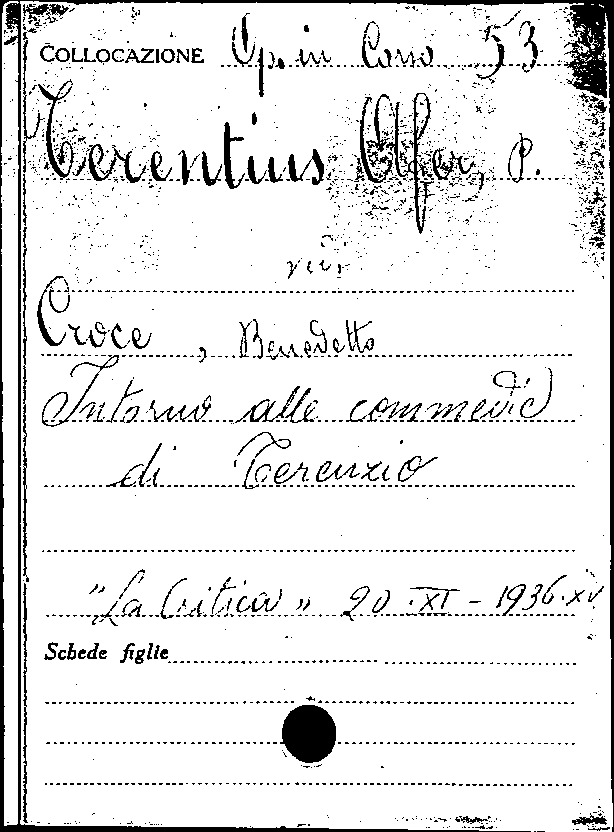 COLLOCAZIONE Op. in Corso 53
Terentius Afer, P.
Croce, Benedetto
Intorno alle commedie
di Terenzio
"La Critica" 20.XI-1936.XV
Schede figlie